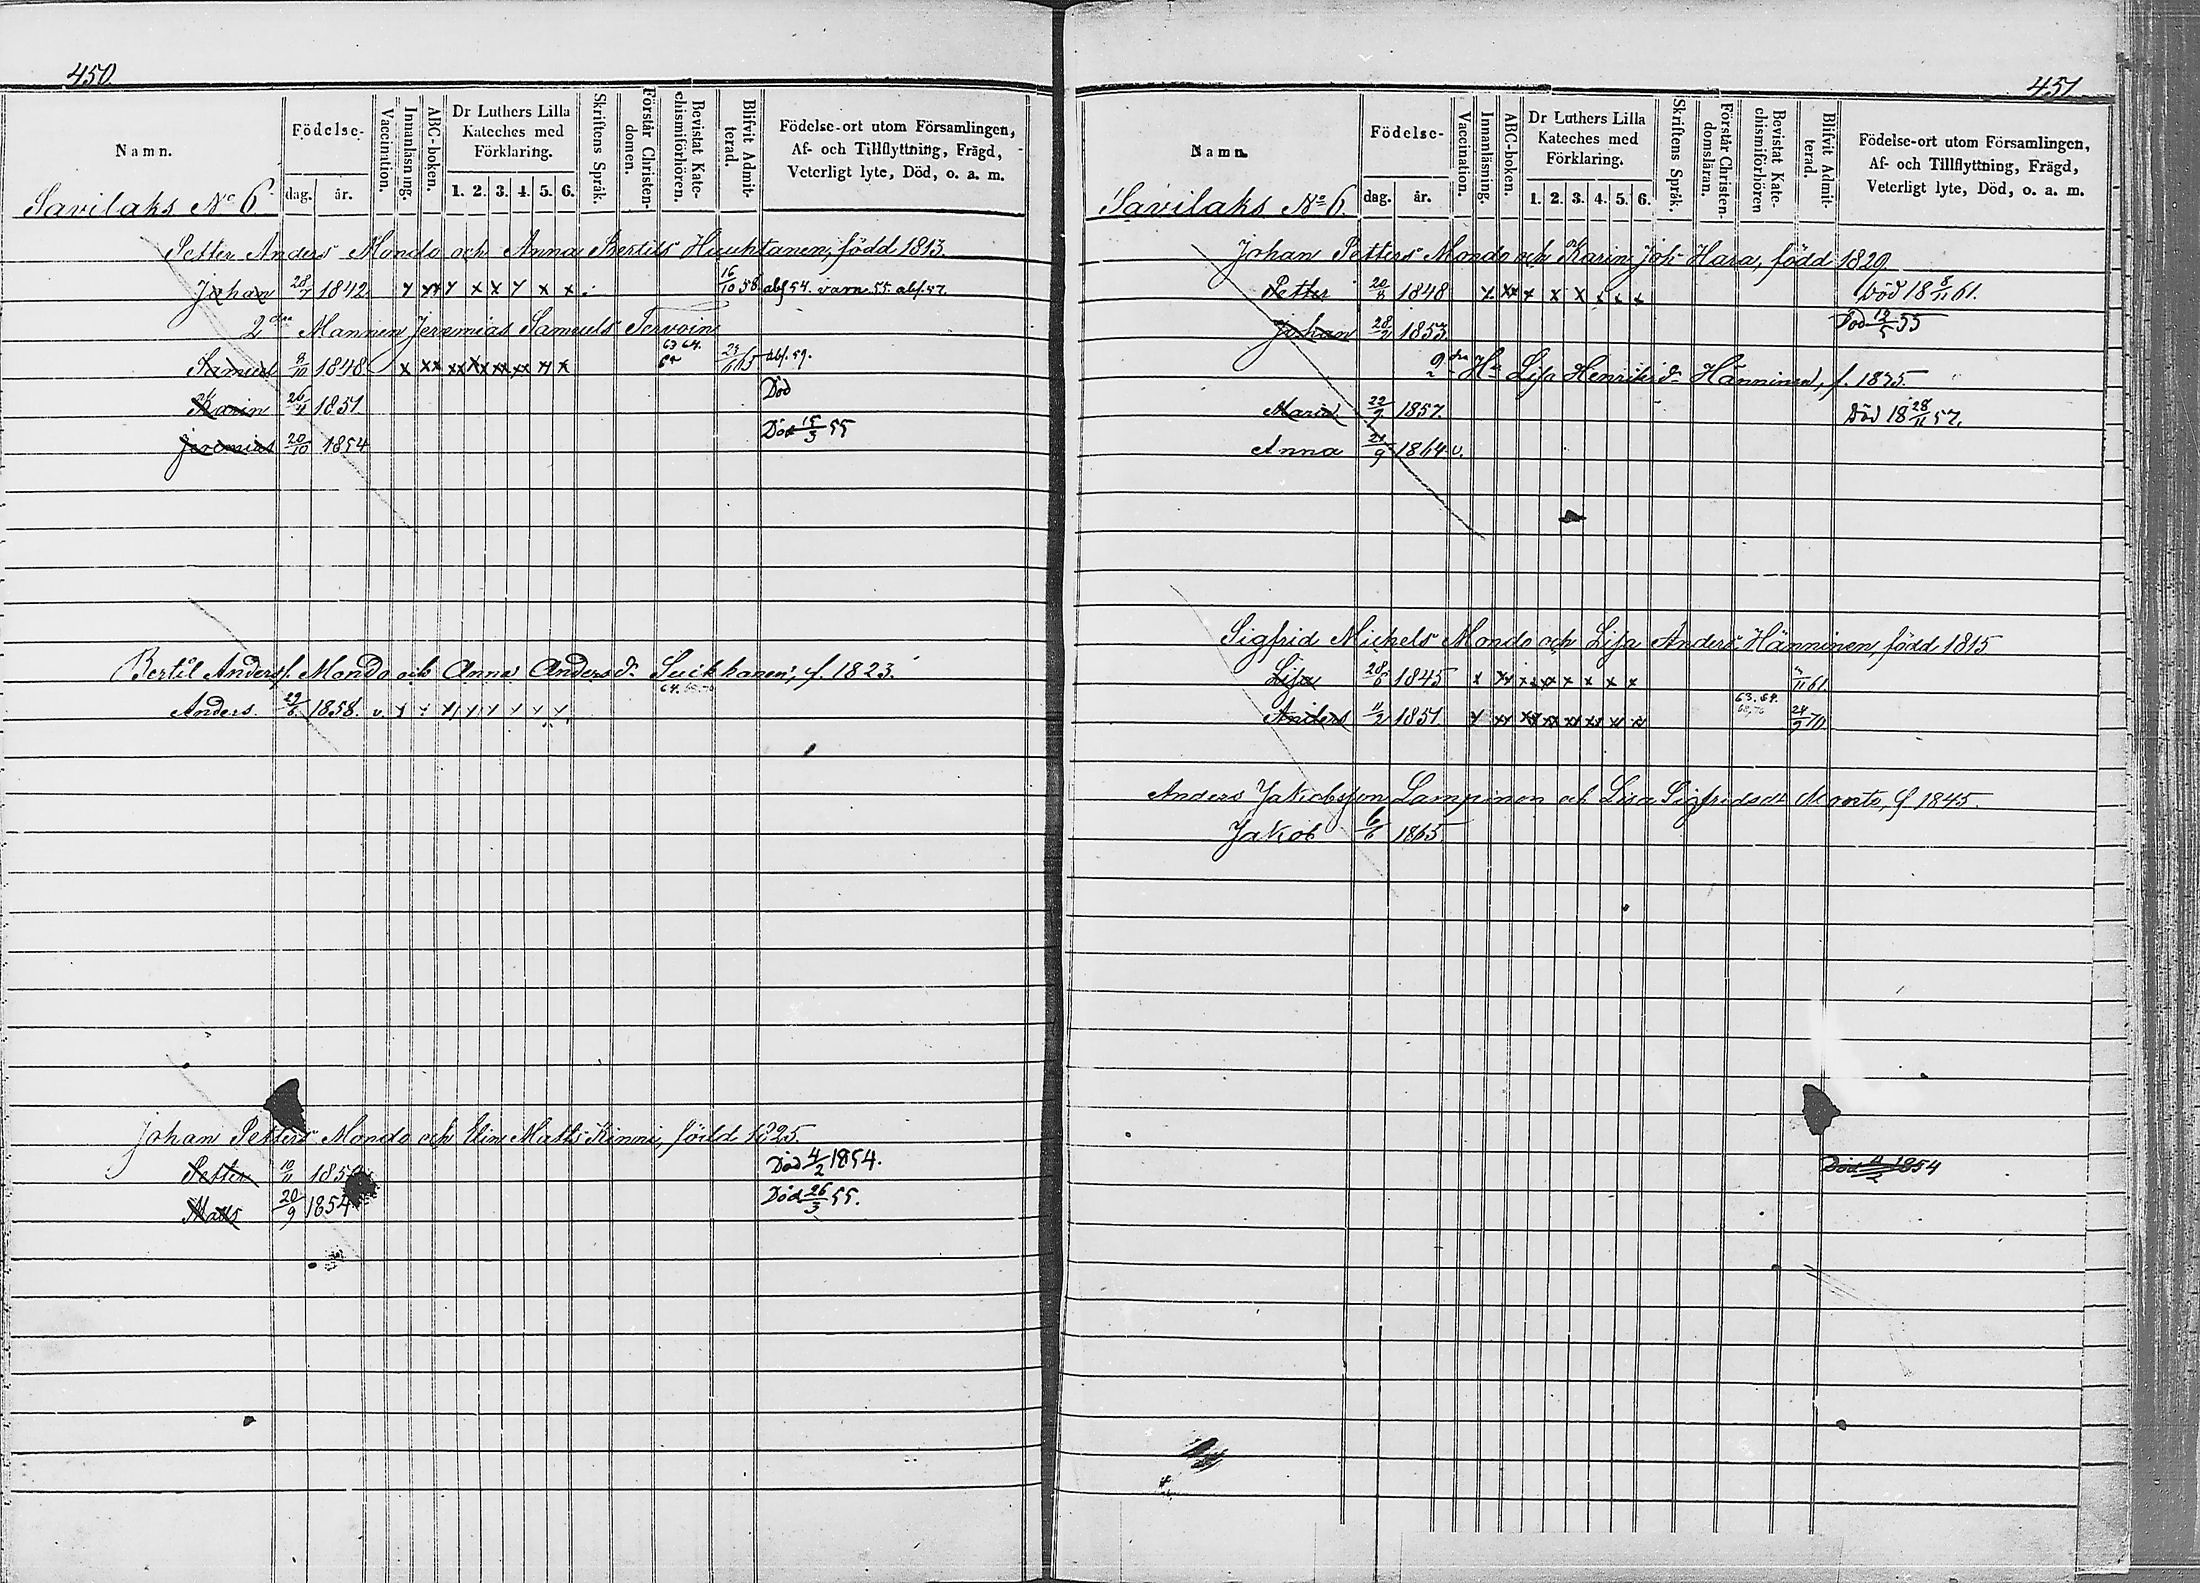 450
Namn. Födelse- dag. år. Vaccination. Innanläsning. ABC-boken. Dr Luthers Lilla Kateches med Förklaring. 1. 2. 3. 4. 5. 6. Skriftens Språk. Förstår Christendomen. Bevistat Katechismiförhören. Blifvit Admitterad. Födelse-ort utom Församlingen, Af- och Tillflyttning, Frägd, Veterligt lyte, Död, o. a. m.
Savilaks No 6.
Petter Anders Mondo och Anna Bertils Huuhtanen, född 1813.
Johan 28/7 1842 y xx y x x y x x 16/10 58. abs 54. varn 55. abs. 57.
2dra Mannen Jeremias Samuels Tervoin
63 64.
Samuel 8/10 1848 x xx xx xx xx xx xx x 65 abs. 59.
Karin 26/4 1851 Död
Jeremias 20/10 1854 Död 15/3 55
Bertil Andersf. Mondo och Anna Andersd. Suikkanen, f. 1823.
64.
Anders 29/6 1858. v. y y y y y y y y
Johan Petters Mondo och Elin Matts Kinni, född 1825.
Petter 10/11 185 Död 4/2 1854.
Matts 20/9 1854 Död 26/3 55.
451
Namn. Födelse- dag. år. Vaccination. Innanläsning. ABC-boken. Dr Luthers Lilla Kateches med Förklaring. 1. 2. 3. 4. 5. 6. Skriftens Språk. Förstår Christendomsläran. Bevistat Katechismiförhören Blifvit Admitterad. Födelse-ort utom Församlingen, Af- och Tillflyttning, Frägd, Veterligt lyte, Död, o. a. m.
Savilaks No 6.
Johan Petters Mondo och Karin Joh Hara, född 1829.
Petter 20/8 1848 x xx x x x x x x Död 18 8/11 61.
Johan 28/11 1853. Död 12/5 55
2dra H. Lisa Henriksd. Hänninen, f. 1835.
Maria 22/9 1857. Död 18 28/11 57.
Anna 21/9 1864. v.
Sigfrid Michels Mondo och Lisa Anders Hänninen, född 1815
Lisa 28/6 1845 x xx xx xx x x x x /11 61.
63. 64.
Anders 11/2 1851. y xx xx xx xx xx xx xx 24/9 70.
Anders Jakobsson Lampinen och Lisa Sigfridsdr Monto, f 1845.
Jakob 6/6 1865.
Död 1854